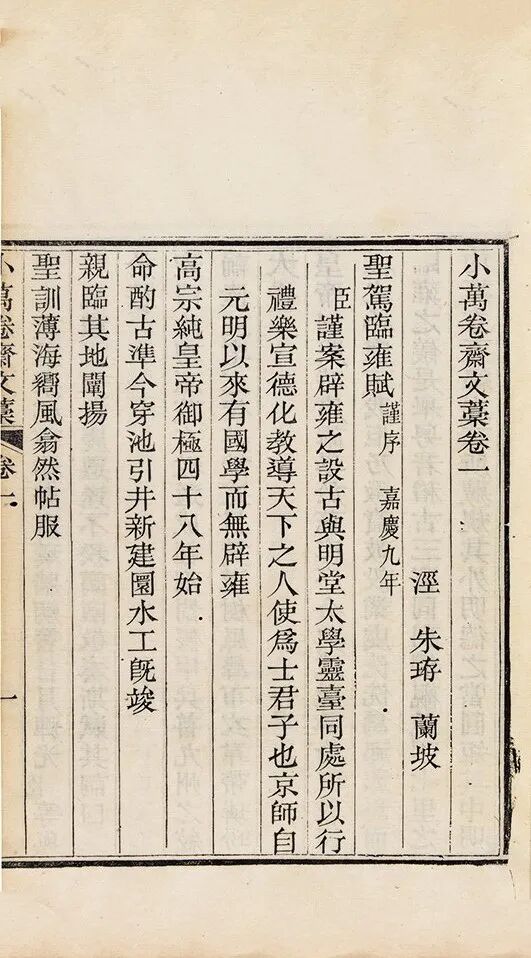 小萬卷齋文藁卷一
涇 朱珔 蘭坡
聖駕臨雍賦 謹序 嘉慶九年
臣謹案辟雍之設古與明堂太學靈臺同處所以行
禮樂宣德化教導天下之人使爲士君子也京師自
元明以來有國學而無辟雍
高宗純皇帝御極四十八年始
命酌古準今穿池引井新建圜水工旣竣
親臨其地闡揚
聖訓薄海嚮風翕然帖服
小萬卷齋文藁 卷一 一